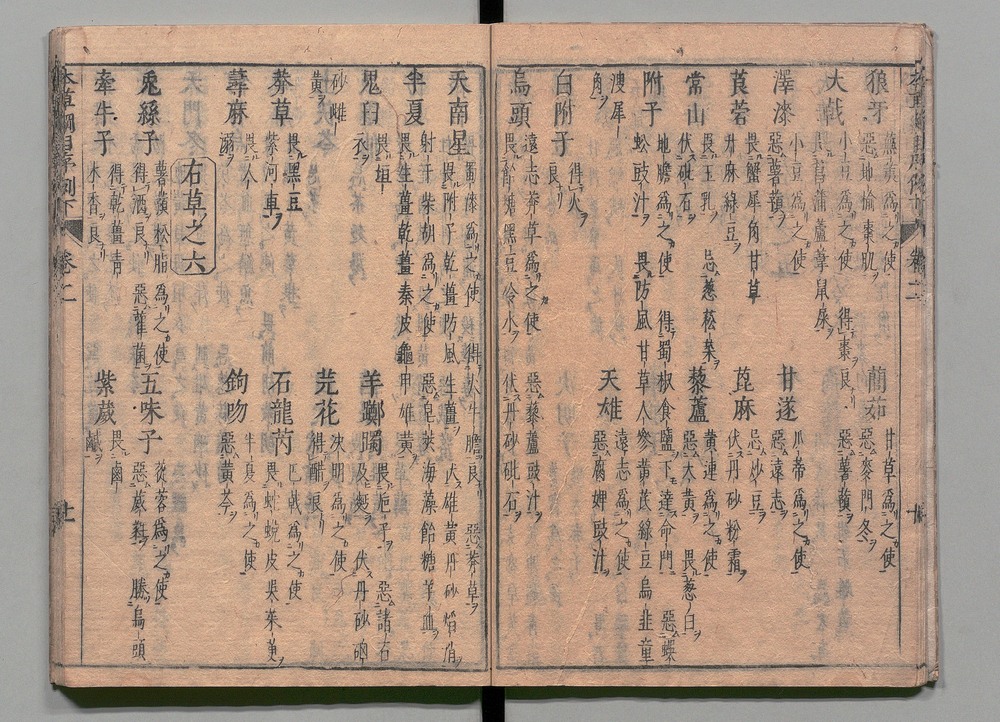 狼牙 蕪荑爲之使 惡地楡棗肌 䕡茹 甘草爲之使 惡麥門冬
大戟 小豆爲之使 得棗良 畏菖蒲蘆葦鼠屎 惡薯蕷
澤漆 小豆爲之使 惡薯蕷 甘遂 瓜蒂爲之使 惡遠志
莨菪 畏蟹犀角甘草升麻綠豆 蓖麻 忌炒豆 伏丹砂粉霜
常山 畏玉札 伏砒石 忌葱菘菜 藜蘆 黃連爲之使 畏葱白 惡大黃
附子 地膽爲之使 得蜀椒食鹽下達命門 惡蜈蚣豉汁 畏防風甘草人參黃芪綠豆烏韭童
溲犀角 天雄 遠志爲之使 惡腐婢豉汁
白附子 得火良
烏頭 遠志莽草爲之使 惡藜蘆豉汁 畏飴糖黑豆冷水 伏丹砂砒石
天南星 蜀漆爲之使 得火牛膽良 惡莽草 畏附子乾薑防風生薑 伏雄黃丹砂焰消
半夏 射干柴胡爲之使 惡皂莢海藻飴糖羊血 畏生薑乾薑秦皮龜甲雄黃
鬼臼 畏垣衣 羊躑躅 畏梔子 惡諸石及麪 伏丹砂硇
砂雌黃 芫花 決明爲之使 得醋良
莽草 畏黑豆紫河車 石龍芮 巴戟爲之使 畏蛇蛻皮吳茱萸
蕁麻 畏人溺 鉤吻 半夏爲之使 惡黃芩
右草之六
兎絲子 薯蕷松脂爲之使 得酒良 惡雚菌 五味子 蓯蓉爲之使 惡葳蕤 勝烏頭
牽牛子 得乾薑青木香良 紫葳 畏鹵鹹
卷二
十
卷二
十一